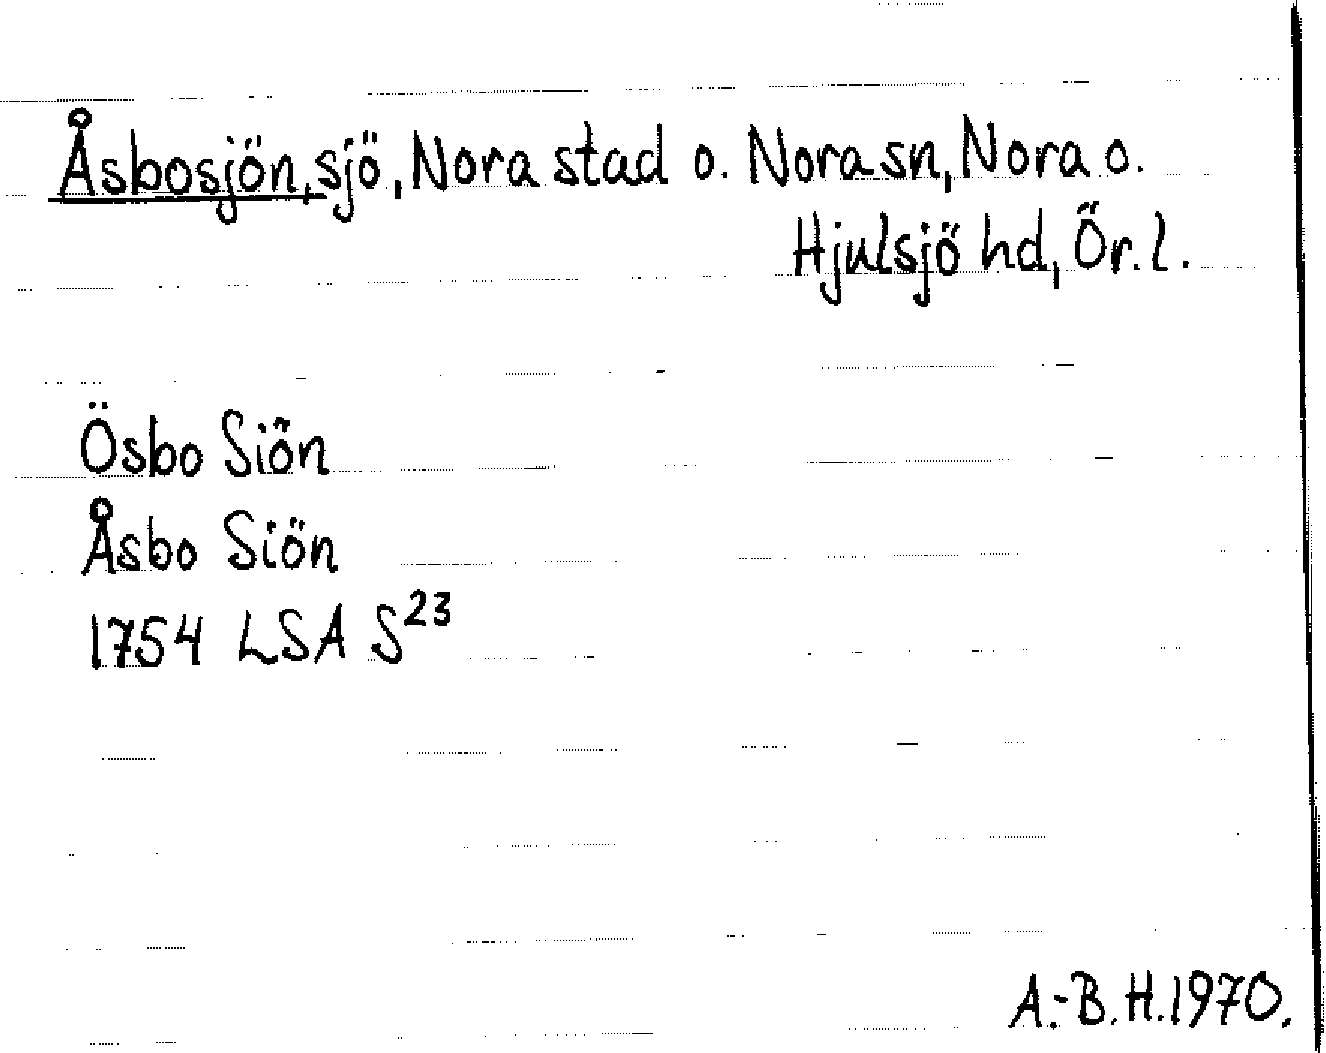 Åsbosjön, sjö, Nora stad o. Nora sn, Nora o.
Hjulsjö hd, Ör. l.
Ösbo Siön
Åsbo Siön
1754 LSA S²³
A.-B. H. 1970.